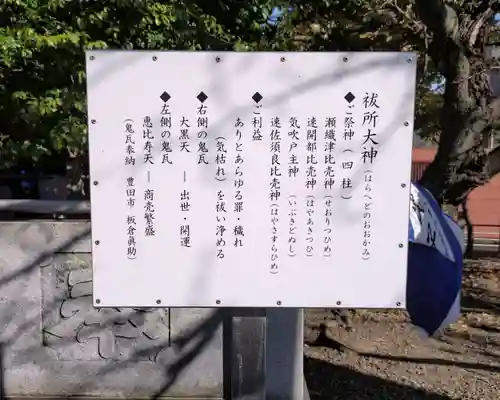 祓所大神（はらへどのおおかみ）
◆ご祭神（四柱）
瀬織津比売神（せおりつひめ）
速開都比売神（はやあきつひめ）
気吹戸主神（いぶきどぬし）
速佐須良比売神（はやさすらひめ）
◆ご利益
ありとあらゆる罪・穢れ
（気枯れ）を祓い浄める
◆右側の鬼瓦
大黒天 ― 出世・開運
◆左側の鬼瓦
恵比寿天 ― 商売繁盛
（鬼瓦奉納 豊田市 板倉眞助）